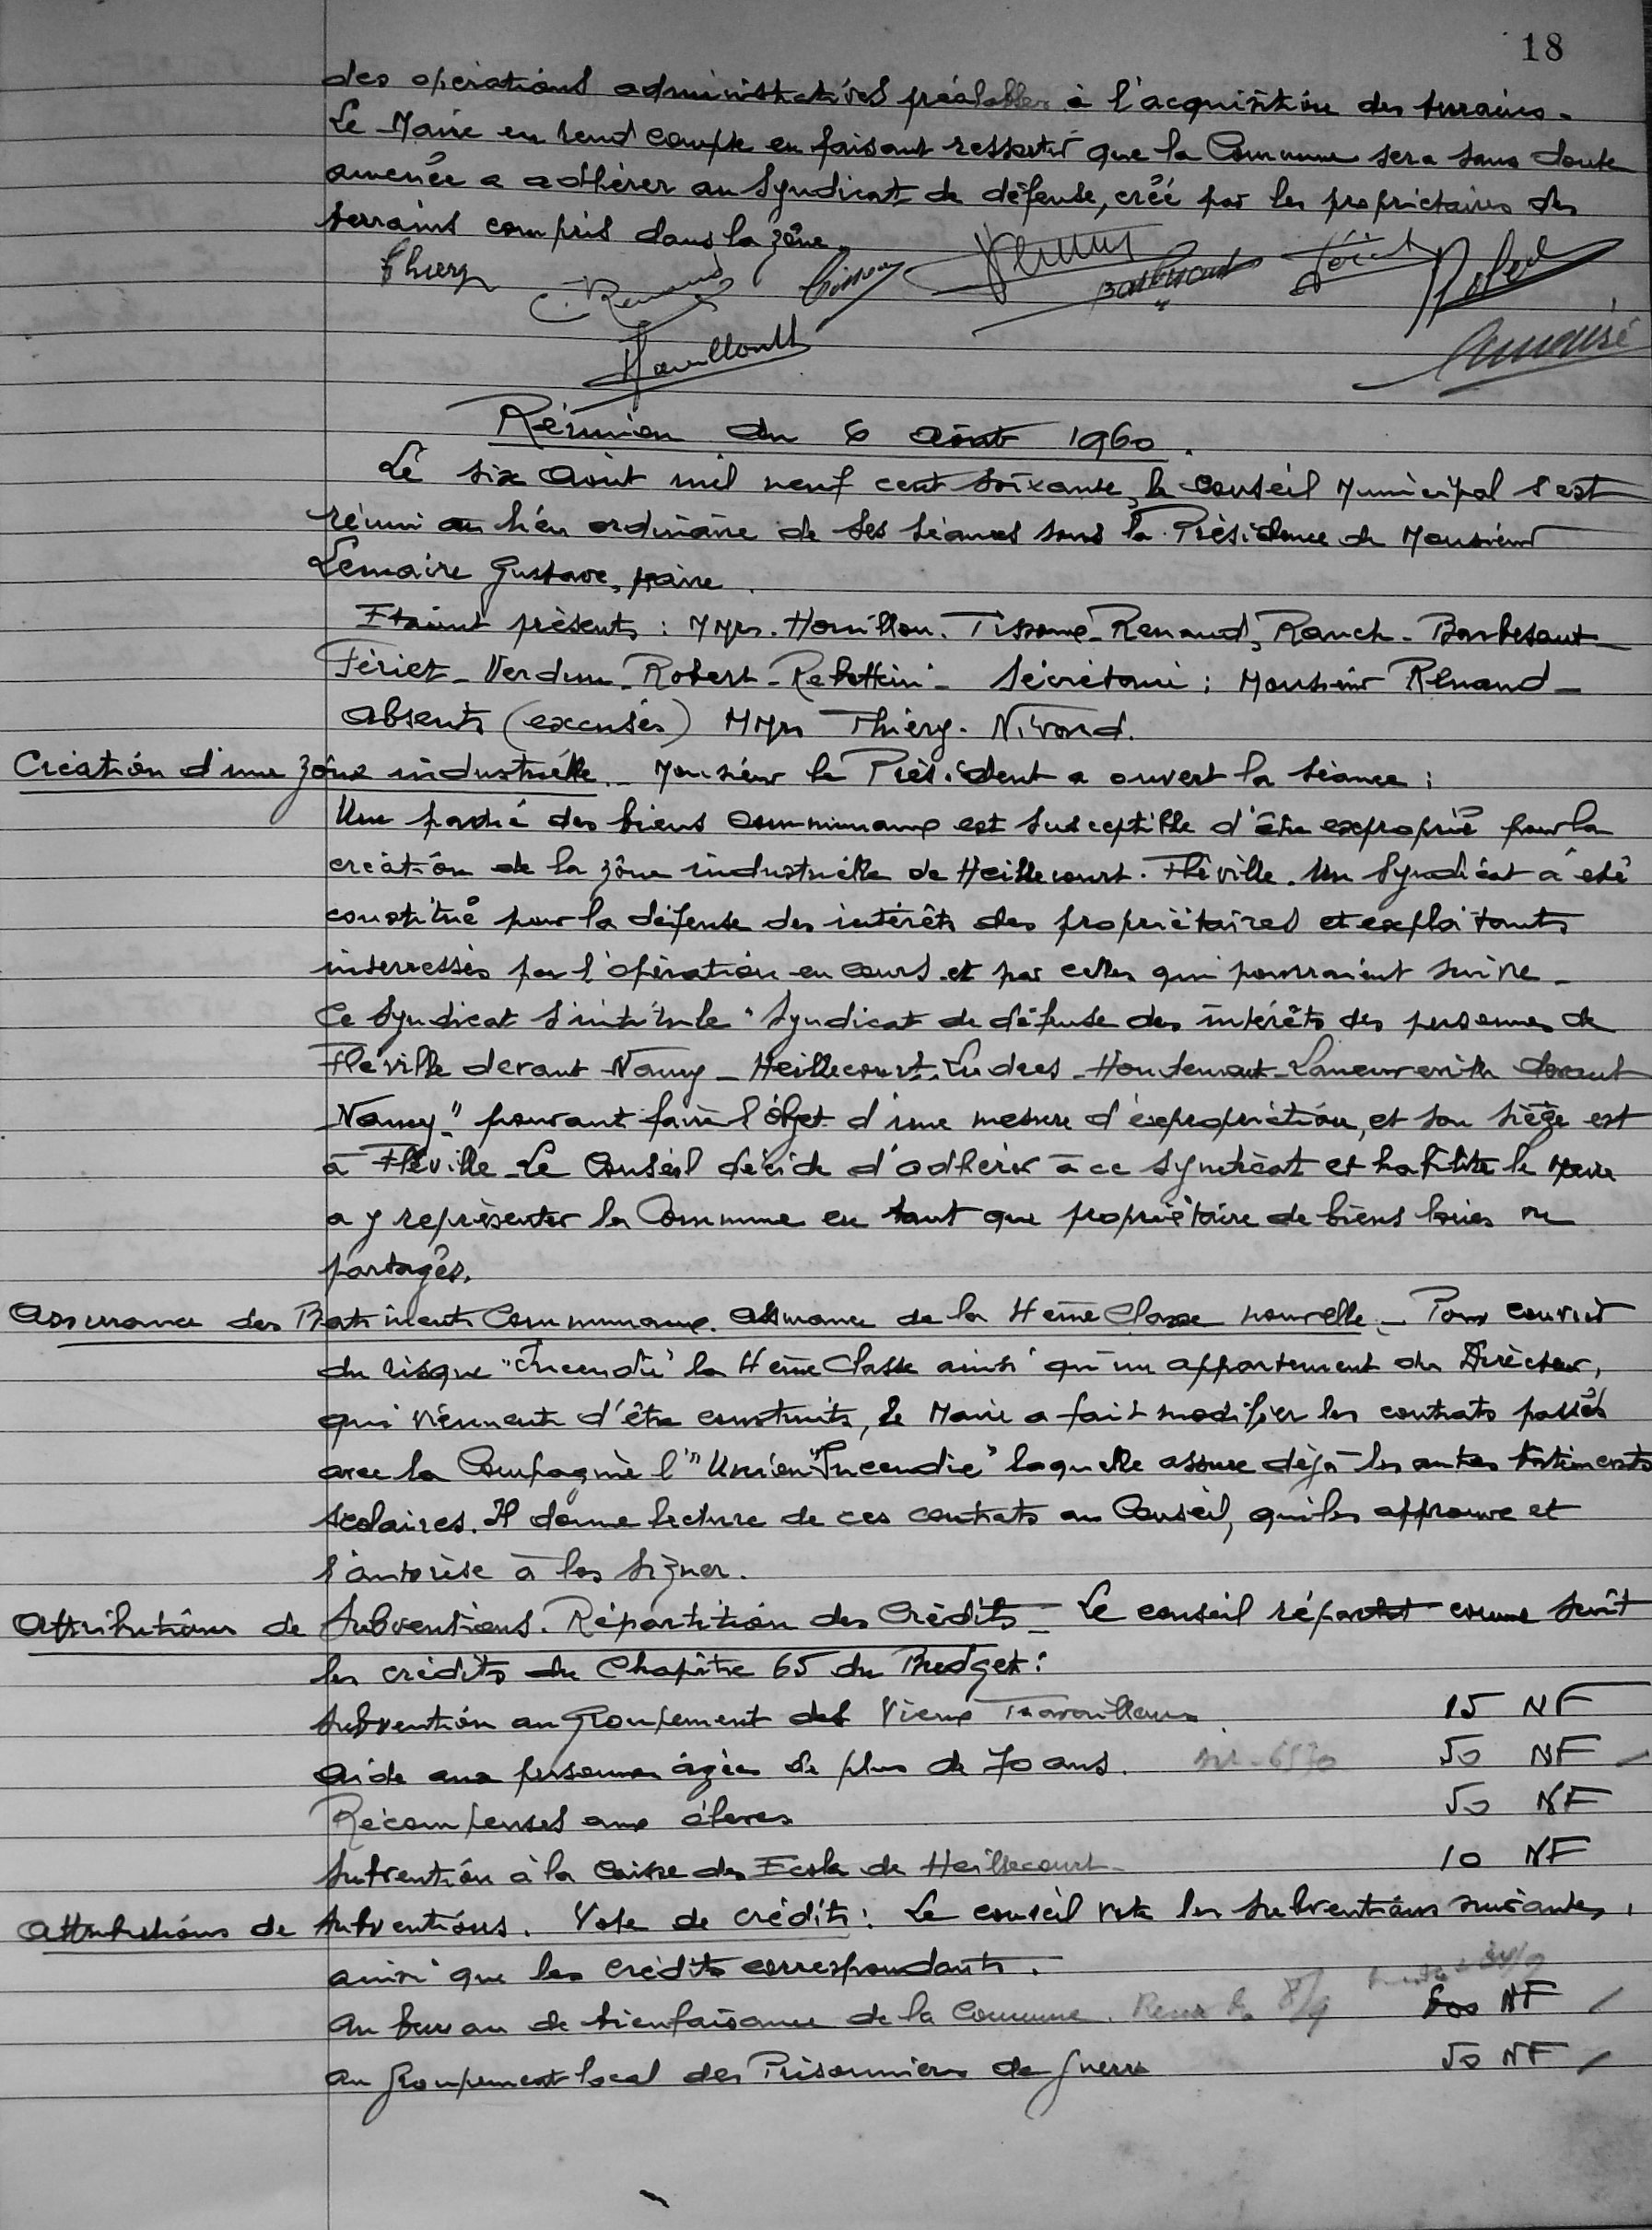 18
des opérations administratives préalables à l'acquisition des terrains.
Le Maire en rend compte en faisant ressortir que la Commune sera sans doute
amenée a adhérer au Syndicat de défense, créé par les propriétaires des
terrains compris dans la zône.
Thiery C. Renaud Barbesant Fériet Robert
Houillon
Réunion du 6 Août 1960.
Le six Août mil neuf cent soixante, le Conseil Municipal s'est
réuni au lieu ordinaire de ses séances sous la Présidence de Monsieur
Lemaire Gustave, Maire.
Etaient présents : MMrs. Houillon. Tissomé - Renaud, Rauch - Barbesant -
Fériet - Verdun - Robert - Rebattini - Sécrétaire : Monsieur Renaud -
Absents (excusés) MMrs Thiéry. Nivord.
Création d'une zône industrielle. - Monsieur le Président a ouvert la séance :
Une partie des biens communaux est susceptible d'être exproprié pour la
création de la zône industrielle de Heillecourt. Fléville. Un Syndicat a été
constitué pour la défense des intérêts des propriétaires et exploitants
interressés par l'opération en cours et par celles qui pourraient suivre -
Ce Syndicat s'intitule "Syndicat de défense des intérêts des personnes de
Fléville devant Nancy - Heillecourt, Ludres - Houdemont - Laneuveville devant
Nancy" pouvant faire l'objet d'une mesure d'expropriation, et son siège est
à Fléville - Le Conseil décide d'adhérer à ce Syndicat et habilite le Maire
a y représenter la Commune en tant que propriétaire de biens loués ou
partagés.
Assurance des Batiments Communaux. Assurance de la 4ème Classe nouvelle - Pour couvrir
du risque "Incendie" la 4ème Classe ainsi qu'un appartement du Directeur,
qui viennent d'être construits, le Maire a fait modifier les contrats passés
avec la Compagnie l'"Union Incendie" laquelle assure déjà les autres batiments
scolaires. Il donne lecture de ces contrats au Conseil, qui les approuve et
l'autorise à les signer.
Attributions de Subventions. Répartition des Crédits - Le conseil répartit comme suit
les crédits du Chapître 65 du Budget :
Subvention au Groupement des Vieux Travailleurs. 15 NF
Aide aux personnes âgées de plus de 70 ans. 50 NF
Récompenses aux élèves 50 NF
Subvention à la Caisse des Ecoles de Heillecourt - 10 NF
Attributions de Subventions. Vote de crédits : Le conseil vote les subventions suivantes,
ainsi que les crédits correspondants.
Au bureau de bienfaisance de la Commune. 8/9 NF
Au Groupement local des Prisonniers de guerre 50 NF